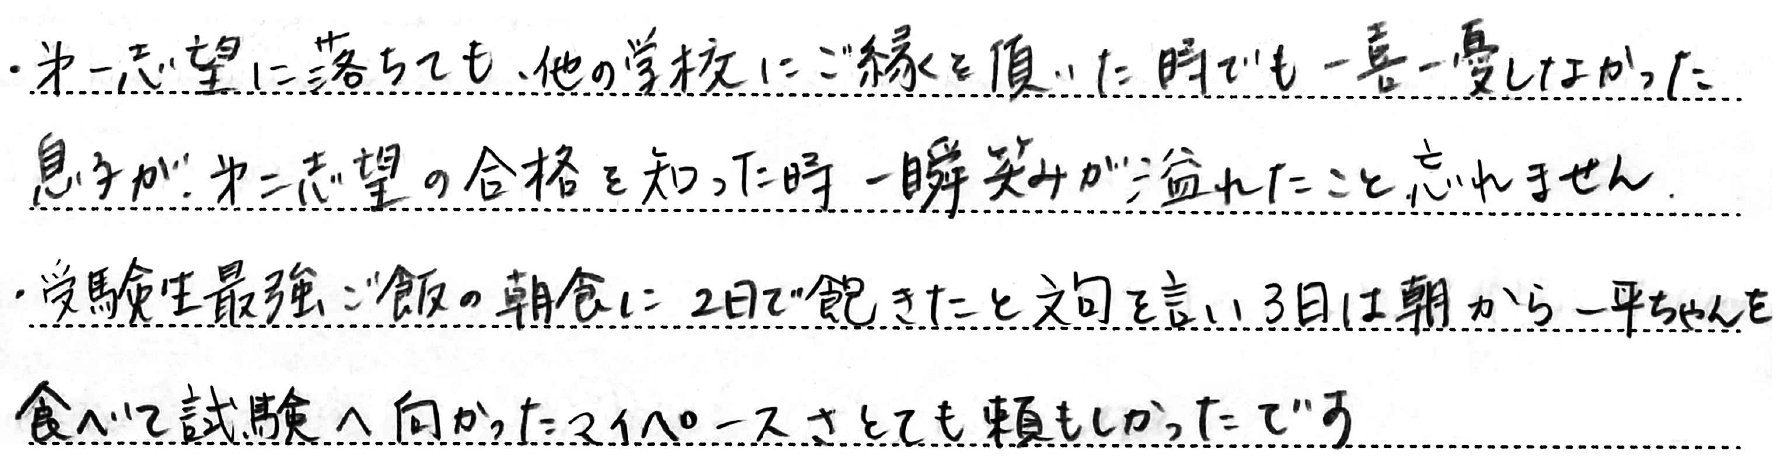 ・第一志望に落ちても、他の学校にご縁を頂いた時でも一喜一憂しなかった
息子が、第二志望の合格を知った時一瞬笑みが溢れたこと忘れません.
・受験生最強ご飯の朝食に2日で飽きたと文句を言い3日は朝から一平ちゃんを
食べて試験へ向かったマイペースさとても頼もしかったです